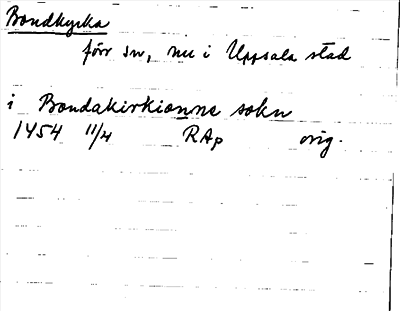 Bondkyrka
förr sn, nu i Uppsala stad
i Bondakirkionne sokn
1454 11/4 RAp orig.